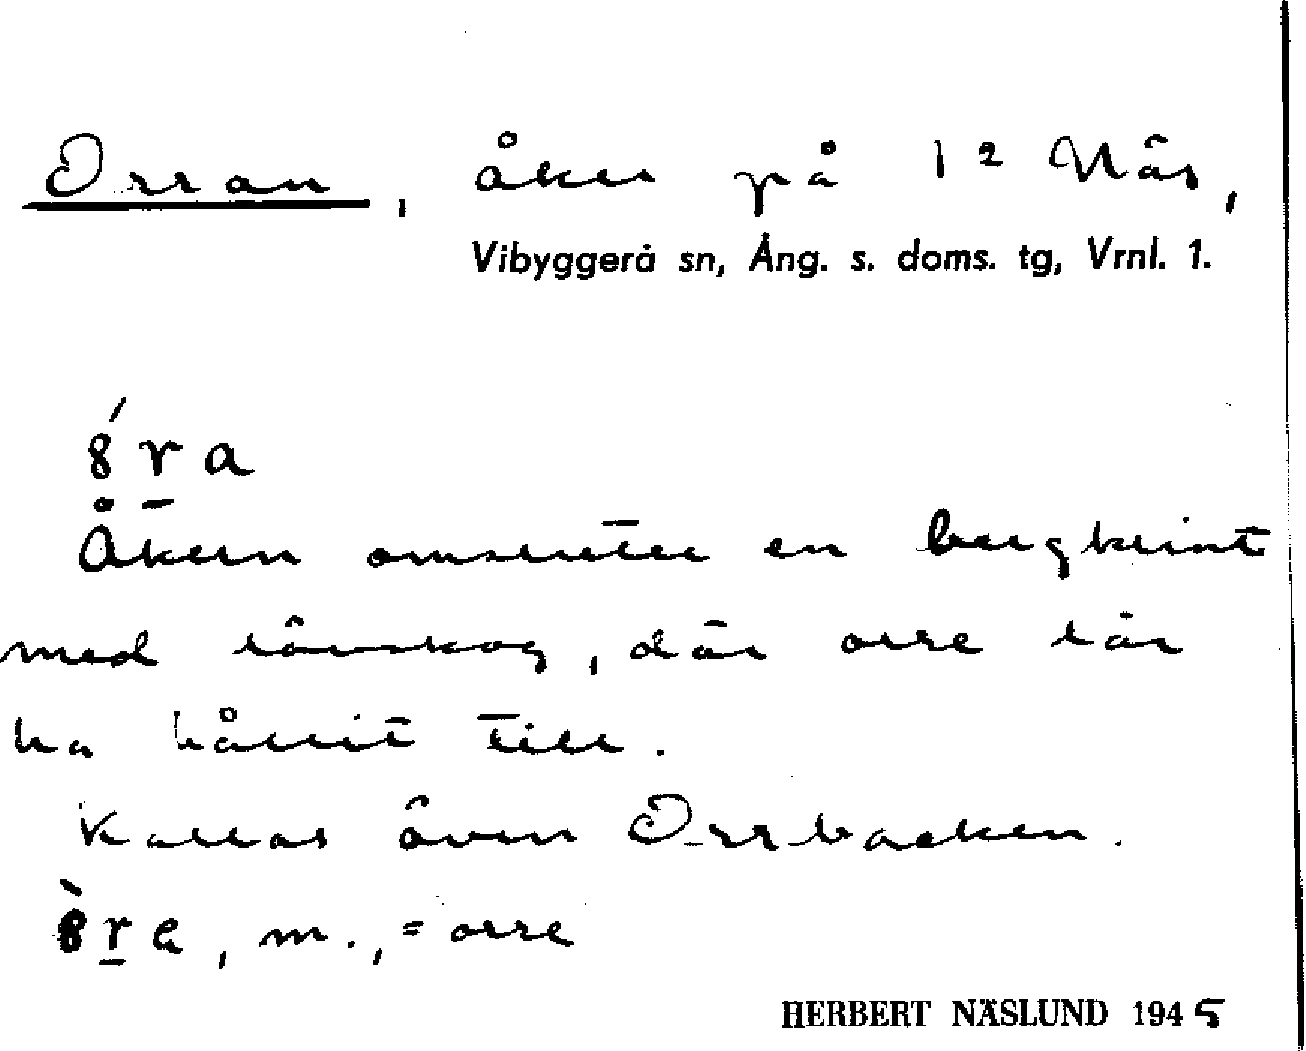 Orran, åker på 1² Näs,
Vibyggerå sn, Ång. s. doms. tg, Vrnl. 1.
8́ r a
Åkern omsluter en bergklint
med lövskog, där orre lär
ha hållit till.
Kallas även Orrbacken.
8̀ r̲ a, m., = orre
HERBERT NÄSLUND 1945